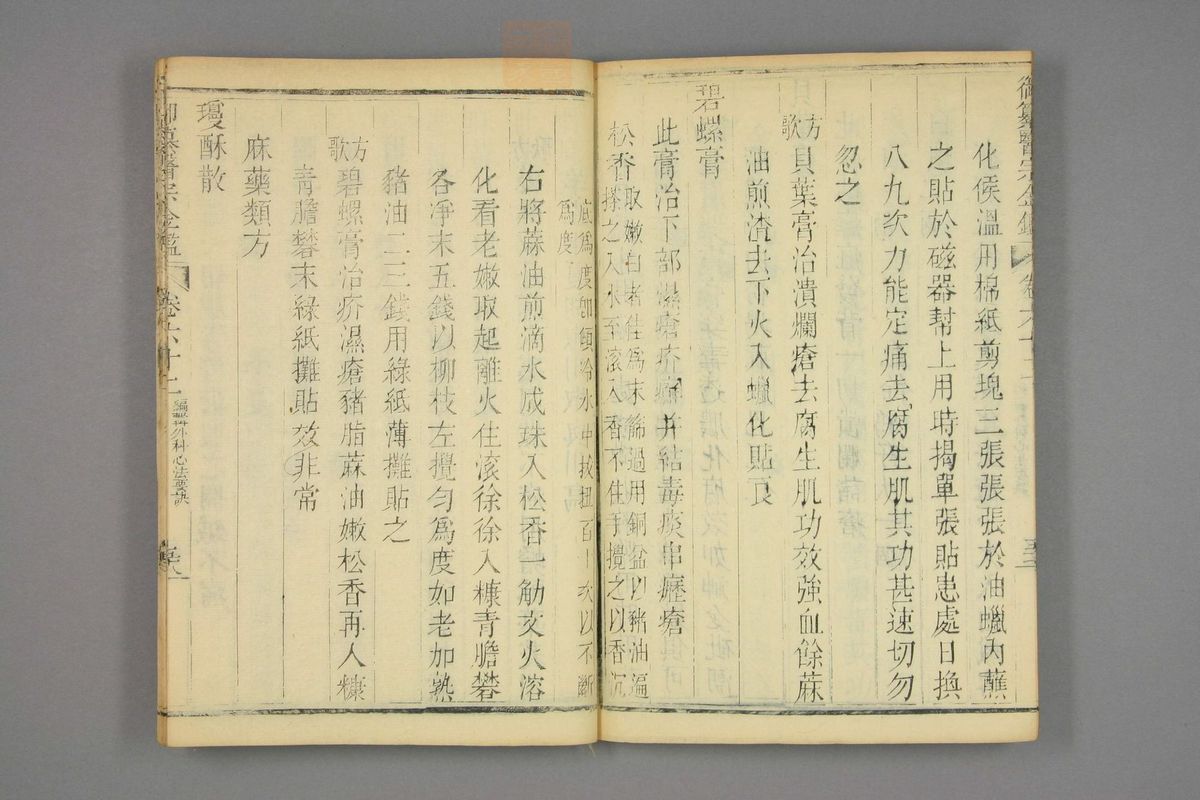 御纂醫宗金鑑
化候溫用棉紙剪塊三張張張於油蠟內蘸
之貼於磁器幫上用時揭單張貼患處日換
八九次力能定痛去腐生肌其功甚速切勿
忽之
方歌
貝葉膏治潰爛瘡去腐生肌功效強血餘蔴
油煎渣去下火入蠟化貼良
碧螺膏
此膏治下部濕瘡疥癬并結毒痰串癧瘡
松香取嫩白者佳為末篩過用銅盆以豬油遍
搽之入水至滾入香不住手攪之以香沉
底為度即傾冷水中拔扭百十次以不斷
為度
右將蔴油煎滴水成珠入松香觔文火溶
化看老嫩取起離火住滾徐徐入糠青膽礬
各淨末五錢以柳枝左攪勻為度如老加熟
豬油二三錢用綠紙薄攤貼之
方歌
碧螺膏治疥濕瘡豬脂蔴油嫩松香再入糠
青膽礬末綠紙攤貼效非常
麻藥類方
瓊酥散
御纂醫宗金鑑
卷六十二
編輯外科心法要訣